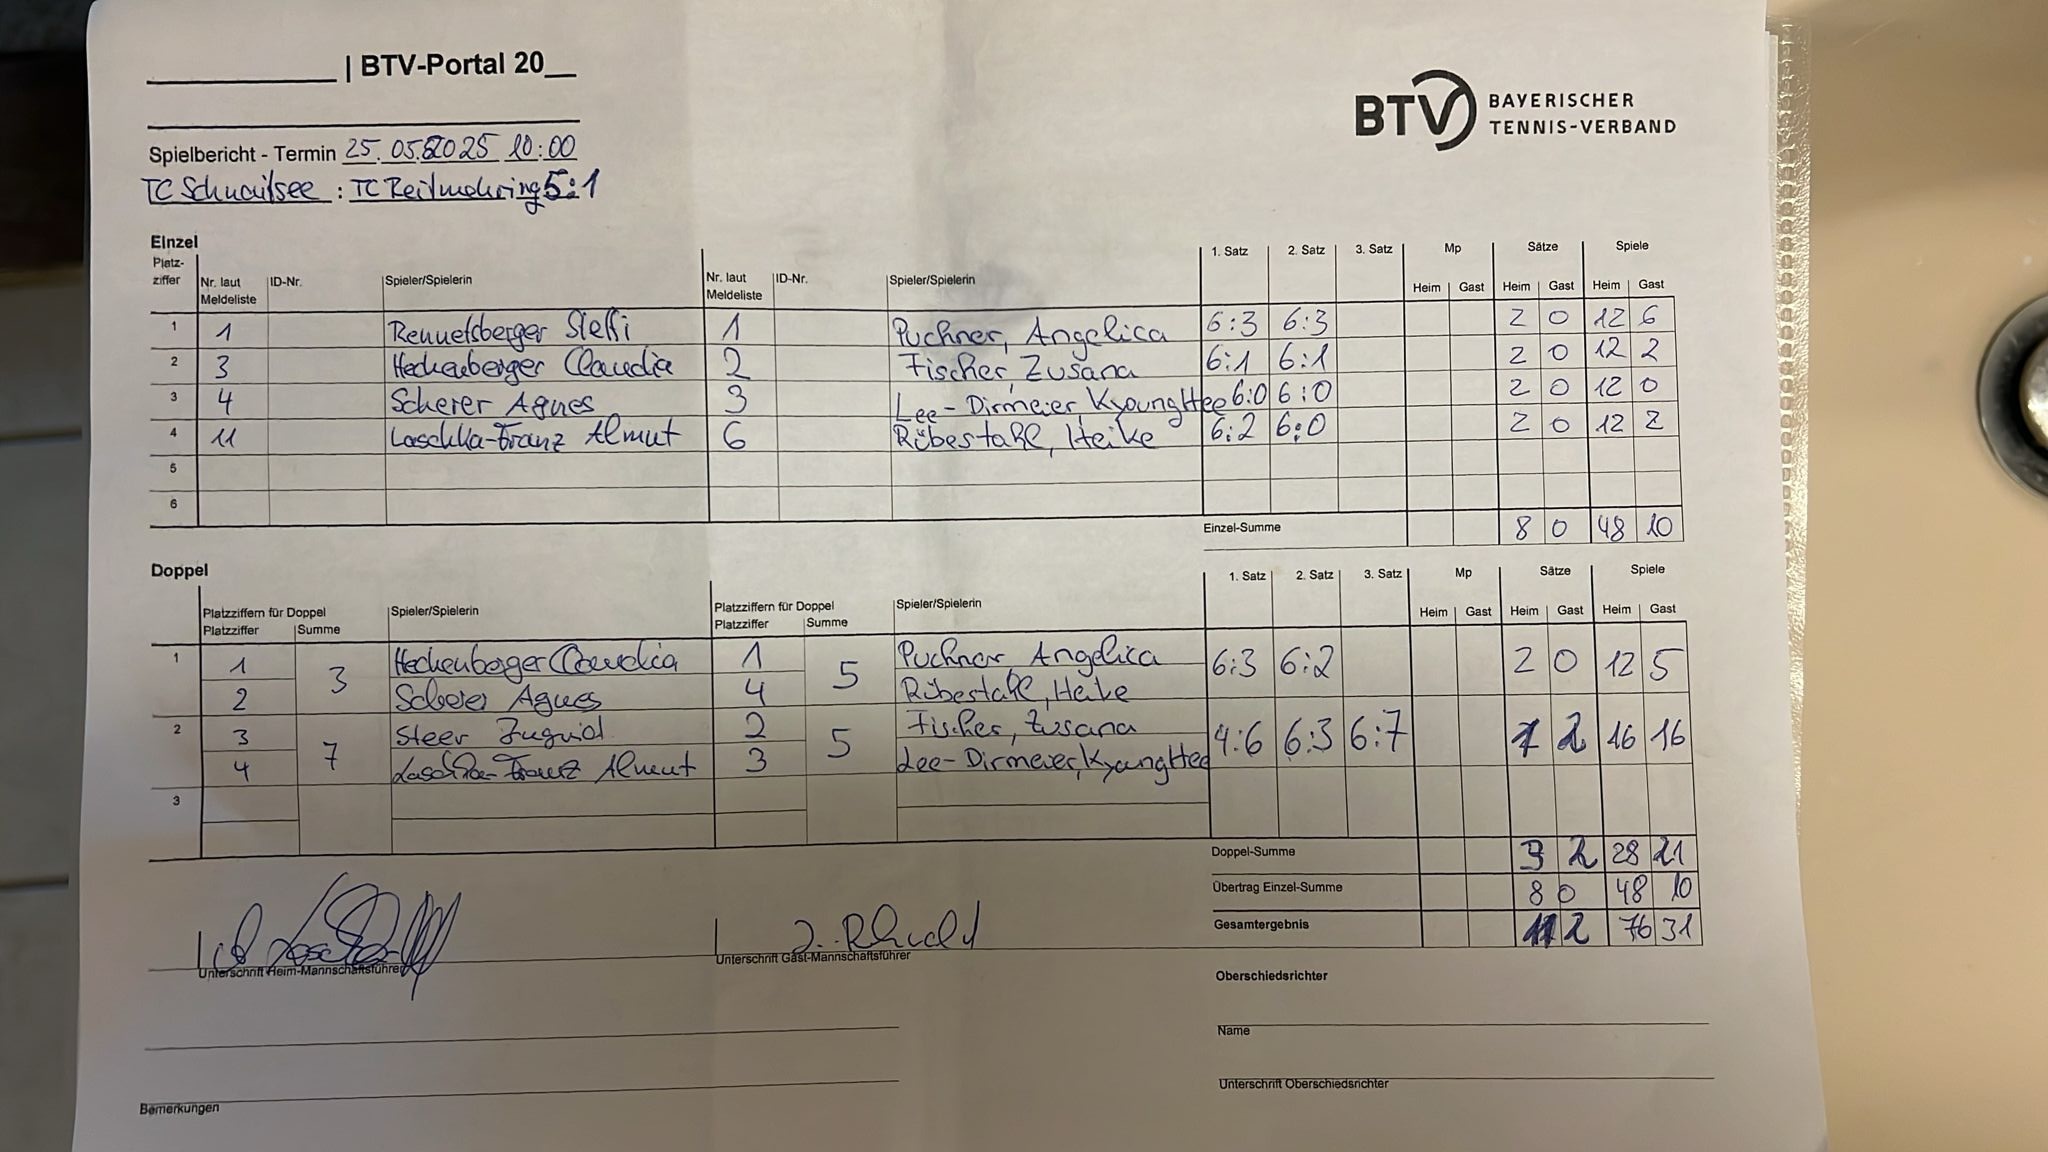 | BTV-Portal 20__
BTV BAYERISCHER TENNIS-VERBAND
Spielbericht - Termin 25.05.2025 10:00
TC Schnaitsee : TC Reitmehring 5:1
Einzel
Platz-ziffer Nr. laut Meldeliste ID-Nr. Spieler/Spielerin Nr. laut Meldeliste ID-Nr. Spieler/Spielerin 1. Satz 2. Satz 3. Satz Mp Heim Gast Sätze Heim Gast Spiele Heim Gast
1 1 Steffi 1 Puchner, Angelica 6:3 6:3 2 0 12 6
2 3 Heckenberger Claudia 2 Fischer, Zusana 6:1 6:1 2 0 12 2
3 4 Scherer Agnes 3 Lee-Dirmeier, KyoungHee 6:0 6:0 2 0 12 0
4 11 Laschka-Franz Almut 6 Rübestahl, Heike 6:2 6:0 2 0 12 2
5
6
Einzel-Summe 8 0 48 10
Doppel
Platzziffern für Doppel Platzziffer Summe Spieler/Spielerin Platzziffern für Doppel Platzziffer Summe Spieler/Spielerin 1. Satz 2. Satz 3. Satz Mp Heim Gast Sätze Heim Gast Spiele Heim Gast
1 1 3 Heckenberger Claudia 1 5 Puchner, Angelica 6:3 6:2 2 0 12 5
2 Scherer Agnes 4 Rübestahl, Heike
2 3 7 Steer Ingrid 2 5 Fischer, Zusana 4:6 6:3 6:7 1 2 16 16
4 Laschka-Franz Almut 3 Lee-Dirmeier, KyoungHee
3
Doppel-Summe 3 2 28 21
Übertrag Einzel-Summe 8 0 48 10
Gesamtergebnis 11 2 76 31
Unterschrift Heim-Mannschaftsführer
Unterschrift Gast-Mannschaftsführer
Oberschiedsrichter
Name
Unterschrift Oberschiedsrichter
Bemerkungen